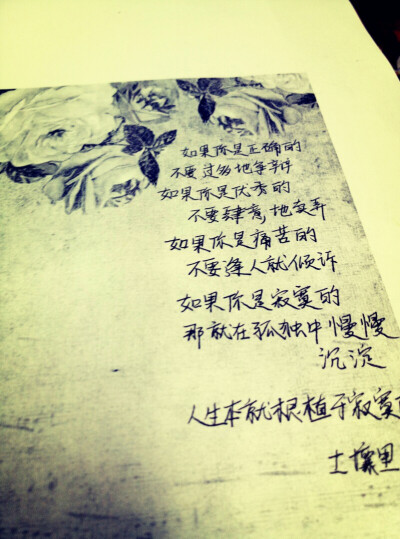 如果你是正确的
不要过多地争辩
如果你是优秀的
不要肆意地卖弄
如果你是痛苦的
不要逢人就倾诉
如果你是寂寞的
那就在孤独中慢慢
沉淀
人生本就根植于寂寞
土壤里